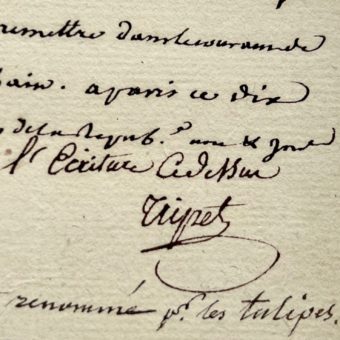 remettre dans le courant de
ain. a paris ce dix
de la Repub.e une &
l'Ecriture Cedessus
Tripet
renommé pr. les tulipes.